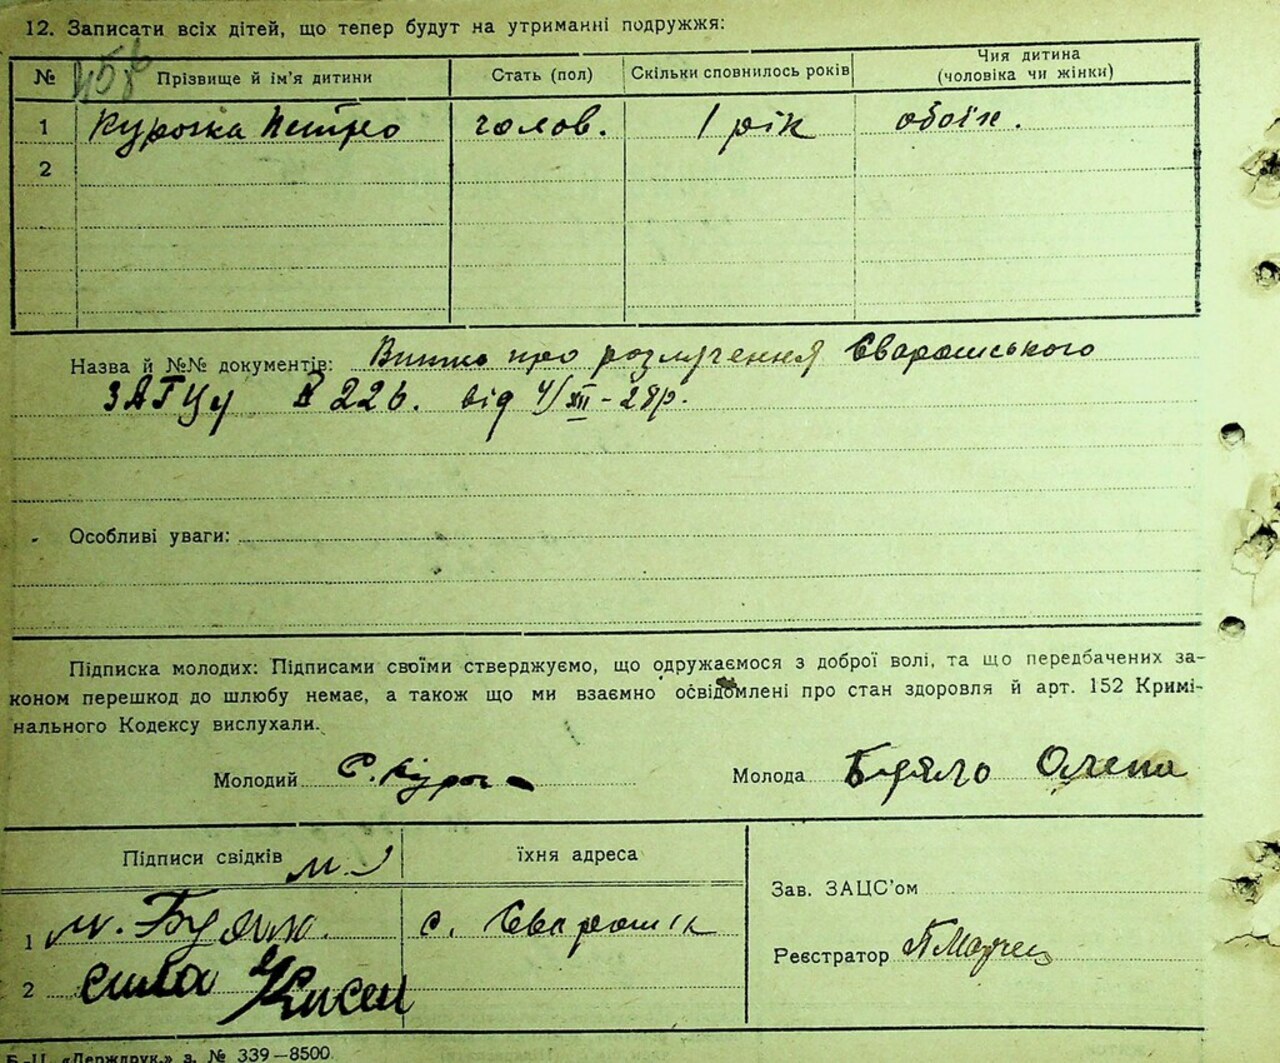 12. Записати всіх дітей, що тепер будут на утриманні подружжя:
№ Прізвище й ім'я дитини Стать (пол) Скільки сповнилось років Чия дитина (чоловіка чи жінки)
1 Курочка Петро чолов. 1 рік обоїх.
2
Назва й №№ документів: Витяг про розлучення Сварошського
ЗАГЦу № 226. від 4/XII-28р.
Особливі уваги:
Підписка молодих: Підписами своїми стверджуємо, що одружаємося з доброї волі, та що передбачених за-
коном перешкод до шлюбу немає, а також що ми взаємно освідомлені про стан здоровля й арт. 152 Кримі-
нального Кодексу вислухали.
Молодий С. Молода Олена
Підписи свідків їхня адреса
1 М. с.
2
Зав. ЗАЦС'ом
Реєстратор
Б.-Ц. «Держдрук.» з. № 339—8500